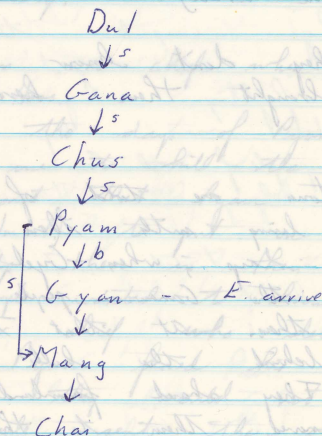 Dul
↓ s
Gana
↓ s
Chus
↓ s
Pyam
↓ b
Gyan - E. arrive
s ↓
Mang
↓
Chai